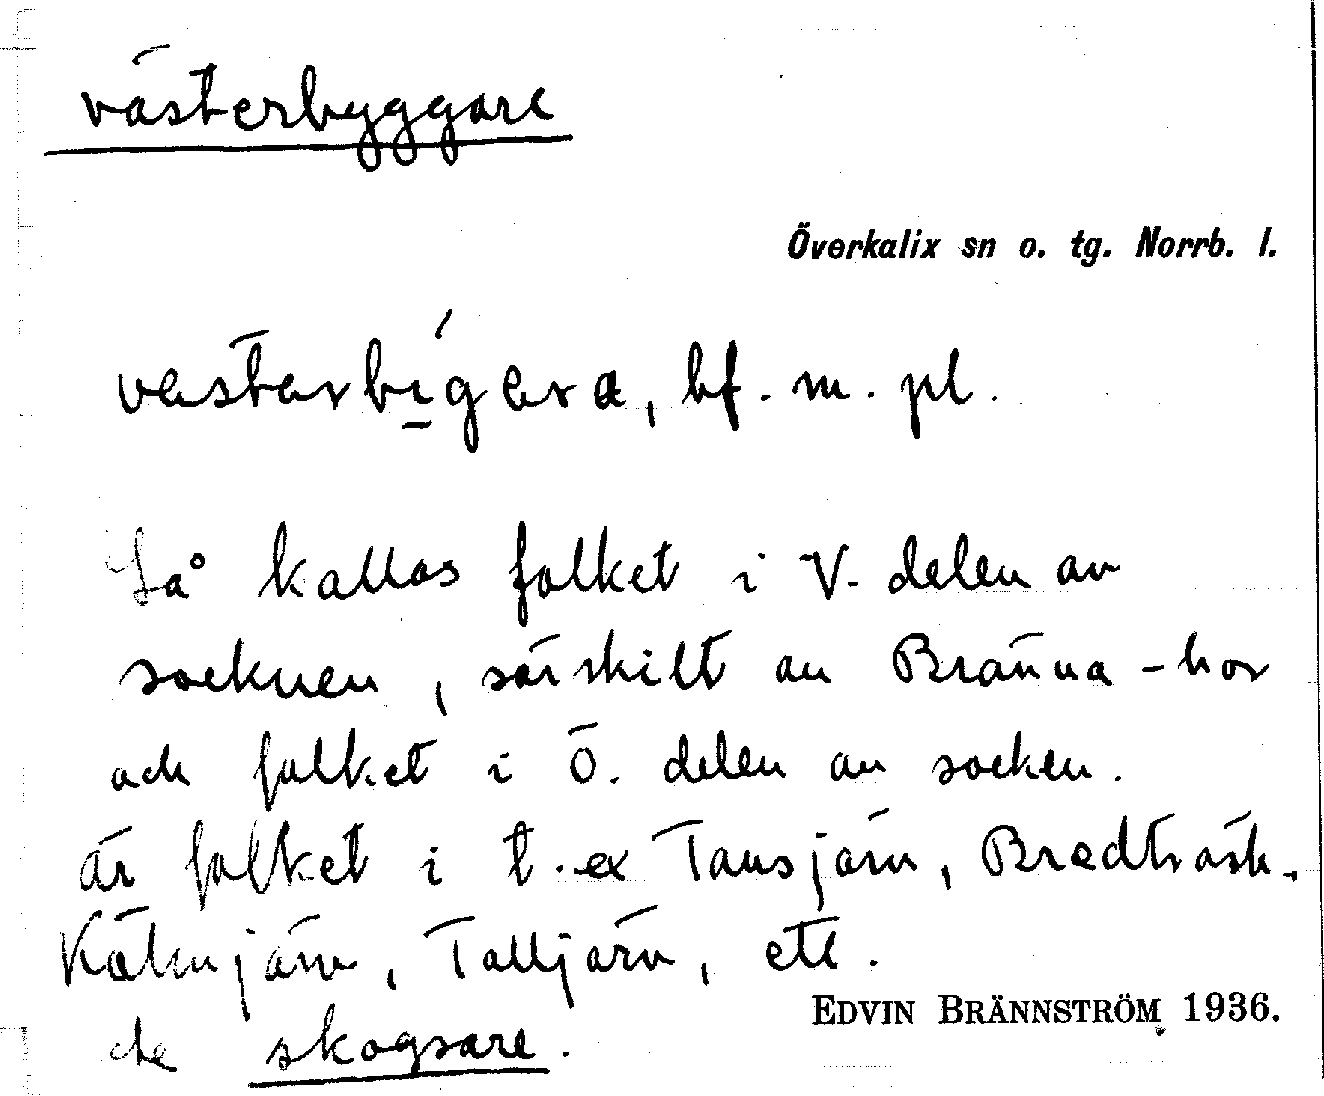 västerbyggare
Överkalix sn o. tg. Norrb. l.
vestarbígera, bf. m. pl.
Så kallas folket i V. delen av
socknen, särskilt av Bränna-bor
och folket i Ö. delen av socken.
är folket i t.ex Tansjärn, Bredträsk,
Kälmjärv, Talljärv, etc.
de skogsare.
EDVIN BRÄNNSTRÖM 1936.